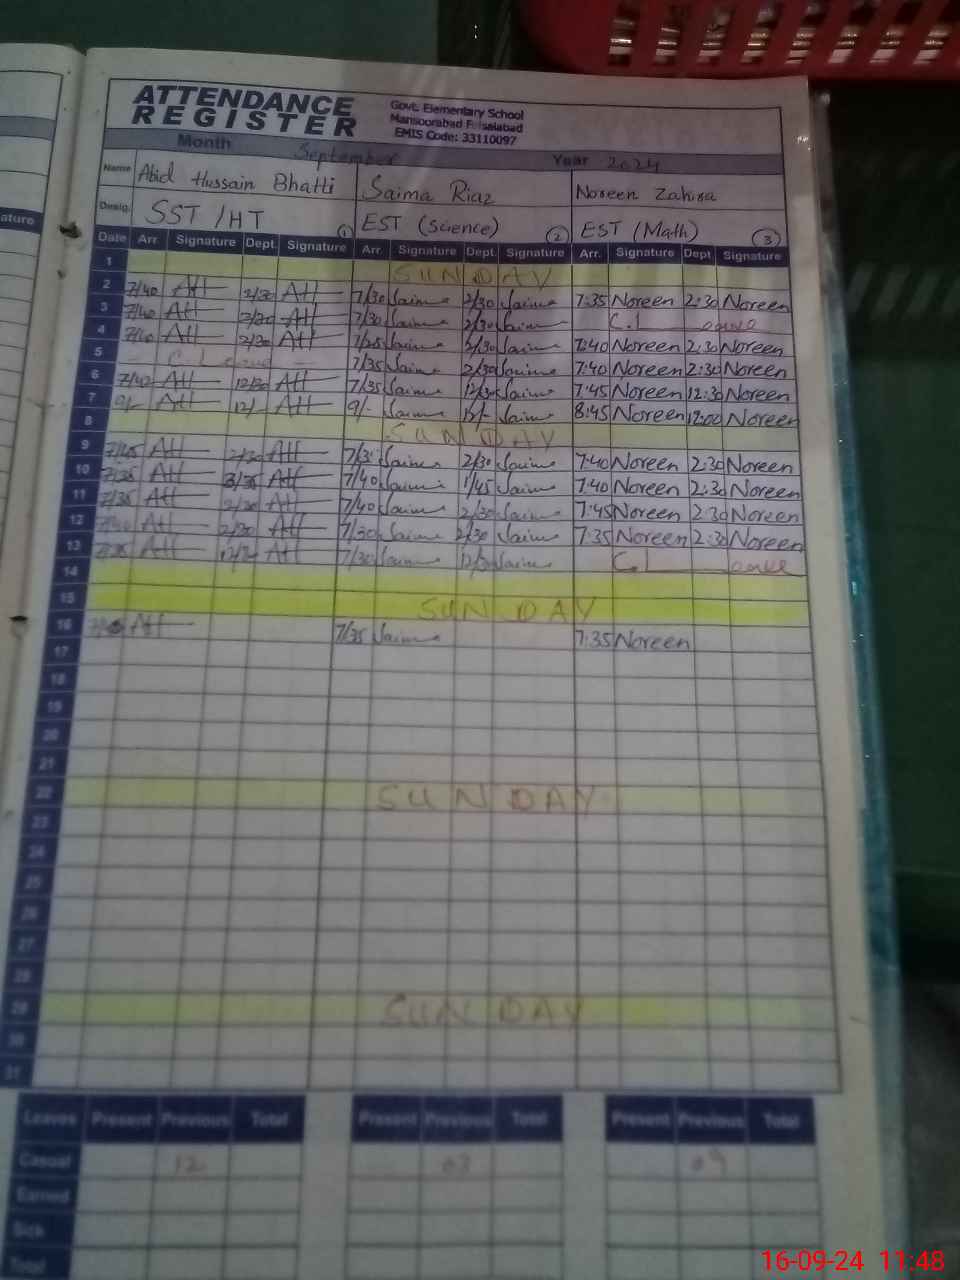 ATTENDANCE REGISTER
Govt. Elementary School
Mansoorabad Faisalabad
EMIS Code: 33110097
Month September Year 2024
Name Abid Hussain Bhatti Saima Riaz Noreen Zahira
Desig. SST/HT 1 EST (Science) 2 EST (Math) 3
Date Arr. Signature Dept. Signature Arr. Signature Dept. Signature Arr. Signature Dept. Signature
1 SUNDAY
2 7/40 2/30 7/30 Saima 2/30 Saima 7:35 Noreen 2:30 Noreen
3 7/40 2/30 7/30 Saima 2/30 Saima C.Leave
4 7/40 2/30 7/35 Saima 2/30 Saima 7:40 Noreen 2:30 Noreen
5 C.Leave 7/35 Saima 2/30 Saima 7:40 Noreen 2:30 Noreen
6 7/40 12/30 7/35 Saima 12/30 Saima 7:45 Noreen 12:30 Noreen
7 9/- 12/- 9/- Saima 12/- Saima 8:45 Noreen 12:00 Noreen
8 SUNDAY
9 7/45 2/30 Saima 2/30 Saima 7:40 Noreen 2:30 Noreen
10 7/35 7/40 Saima 1/45 Saima 7:40 Noreen 2:30 Noreen
11 7/35 2/30 7/40 Saima 2/30 Saima 7:45 Noreen 2:30 Noreen
12 7/40 2/30 7/30 Saima 2/30 Saima 7:35 Noreen 2:30 Noreen
13 7/35 7/30 Saima 12/30 Saima C.Leave
14
15 SUNDAY
16 7/35 Saima 7:35 Noreen
17
18
19
20
21
22 SUNDAY
23
24
25
26
27
28
29 SUNDAY
30
31
Leaves Present Previous Total Present Previous Total Present Previous Total
Casual 12 03 09
Earned
Sick
Total
ature
16-09-24 11:48